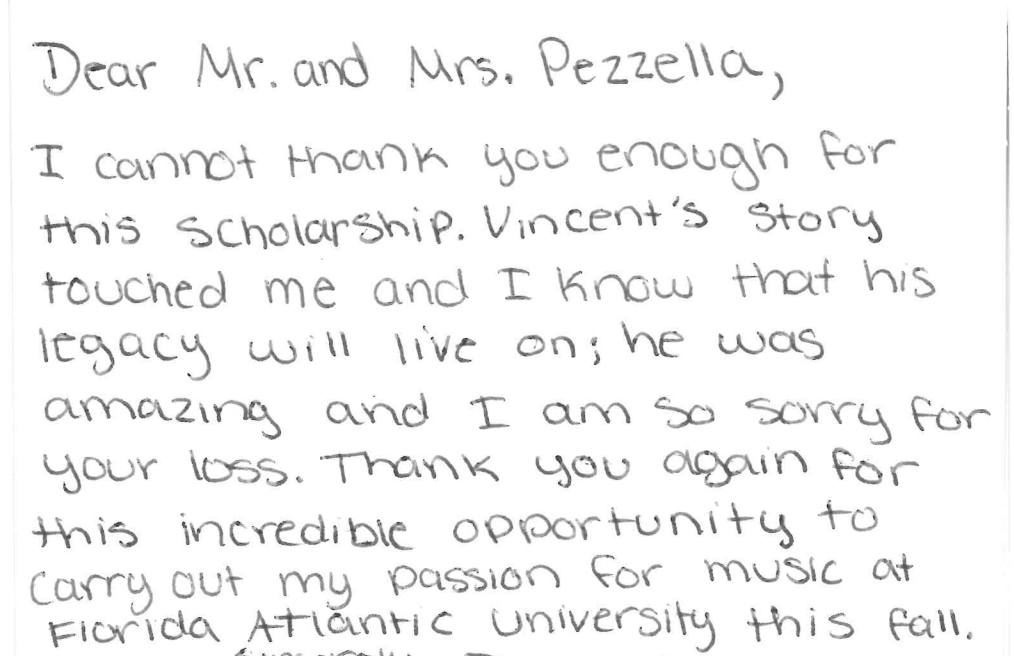 Dear Mr. and Mrs. Pezzella,
I cannot thank you enough for
this scholarship. Vincent's story
touched me and I know that his
legacy will live on; he was
amazing and I am so sorry for
your loss. Thank you again for
this incredible opportunity to
carry out my passion for music at
Florida Atlantic University this fall.